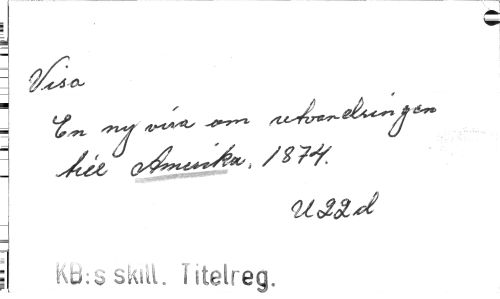 Visa
En ny visa om utvandringen
till Amerika, 1874.
U 22 d
KB:s skill. Titelreg.